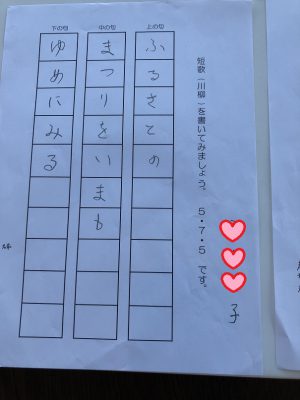 短歌（川柳）を書いてみましょう。　5・7・5 です。
子
上の句
ふるさとの
中の句
まつりをいまも
下の句
ゆめにみる